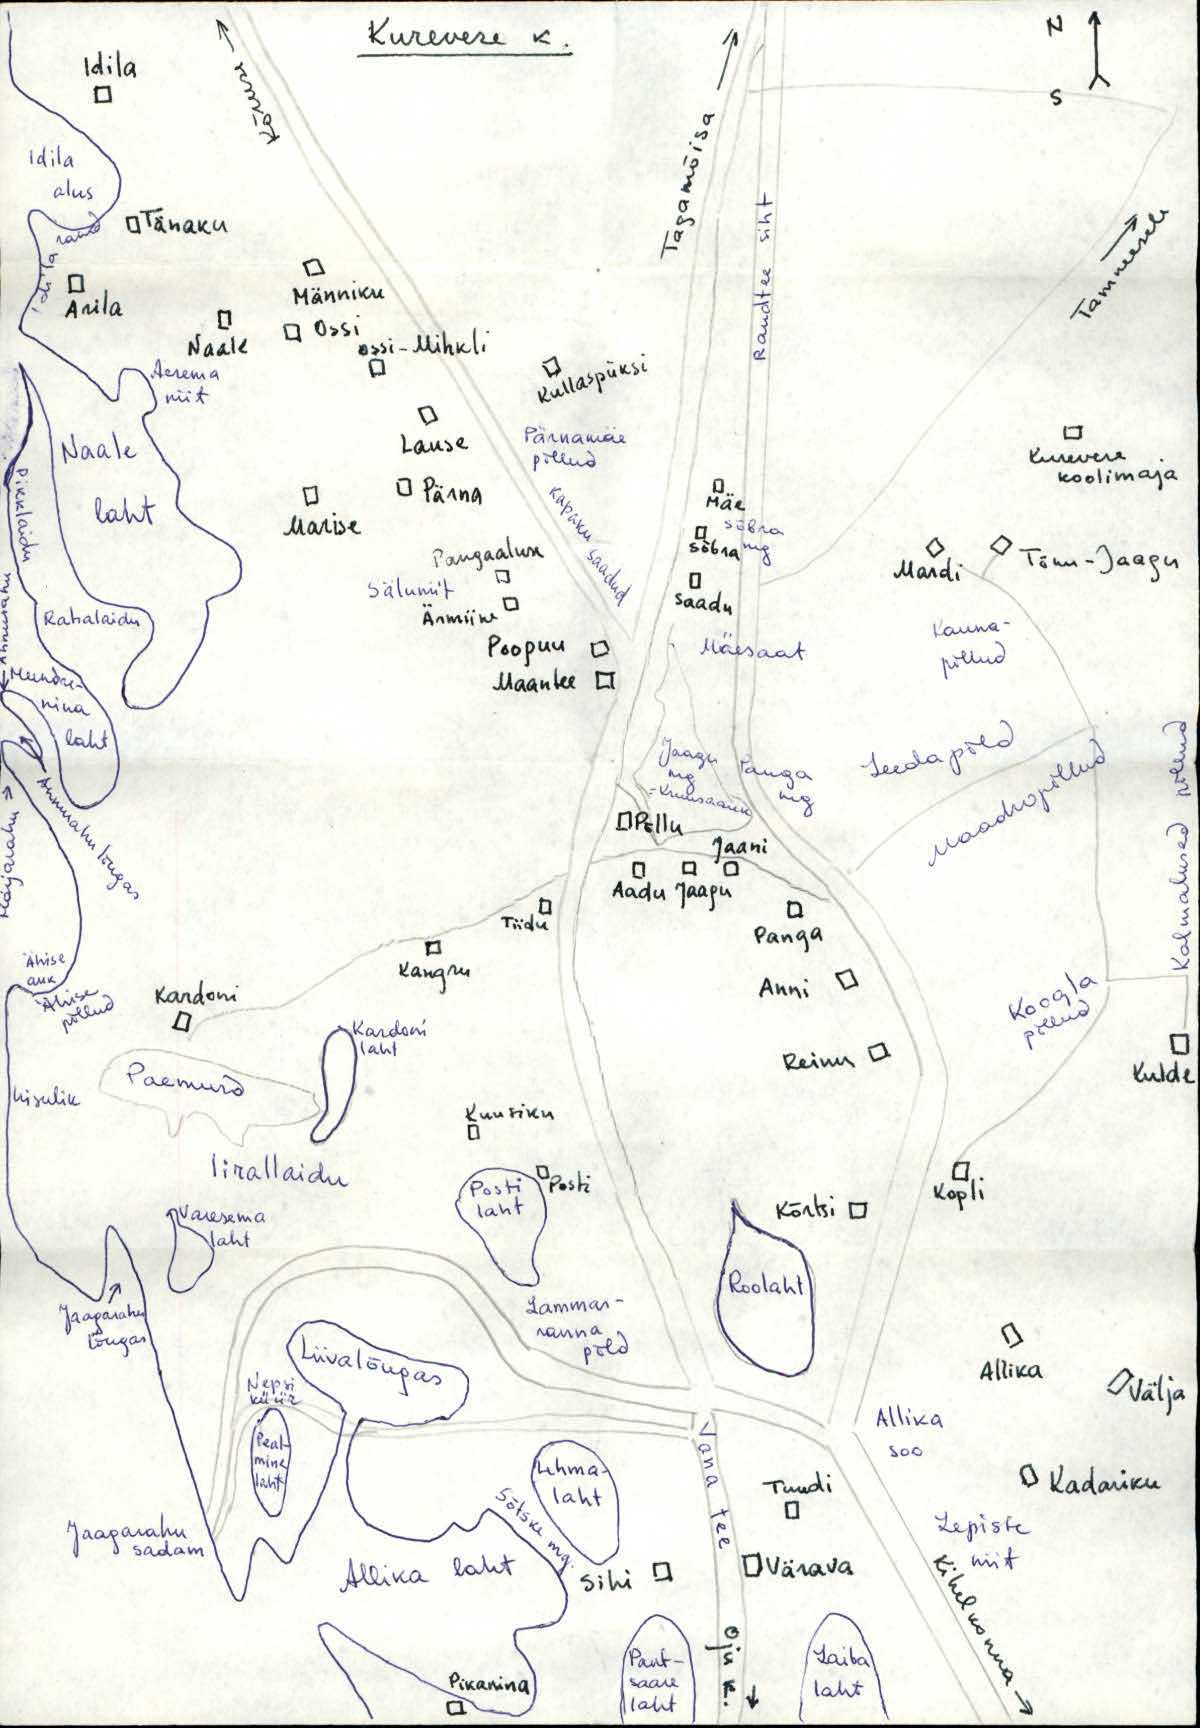 Kurevere k.
N
S
Kõruse
Tagamõisa
Randtee siht
Tammeesele
Idila
Idila
alus
Idila rand
Tänaku
Arila
Männiku
Naale
Ossi
Ossi-Mihkli
Kullaspüksi
Aerema
niit
Lause
Pärnamäe
põllud
Kurevere
koolimaja
Naale
laht
Pikklaidu
Pärna
Marise
Kapaku saadud
Mäe
Sõbra
mg
Sõbra
Saadu
Mardi
Tõnu-Jaagu
Pangaaluse
Sälumit
Ärmiine
Rahalaidu
Poopuu
Maantee
Mäesaat
Kauna-
põllud
laht
Annurahu lõugas
Jaagu
mg
Panga
mg
Leedapõld
Maadropõllud
Kalmalused põllud
Põllu
Jaani
Aadu
Jaagu
Tiidu
Panga
Kangru
Anni
Ähise
auk
Ähise
põllud
Kardoni
Koogla
põllud
Kardoni
laht
Reinu
Kulde
Paemurd
Kuusiku
Iirallaidu
Posti
laht
Posti
Kõrtsi
Kopli
Varesema
laht
Roolaht
Jaagarahu
lõugas
Lammas-
ranna
põld
Allika
Välja
Liivalõugas
Nepsi
küür
Allika
soo
Peal-
mine
laht
Vana tee
Lehma-
laht
Sõtske mg.
Tuudi
Kadariku
Jaagarahu
sadam
Lepiste
niit
Allika laht
Sihi
Värava
Kihelkonna
Oju k.
Pikanina
Pant-
saare
laht
Laiba
laht